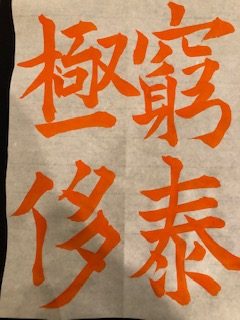 窮泰
極侈